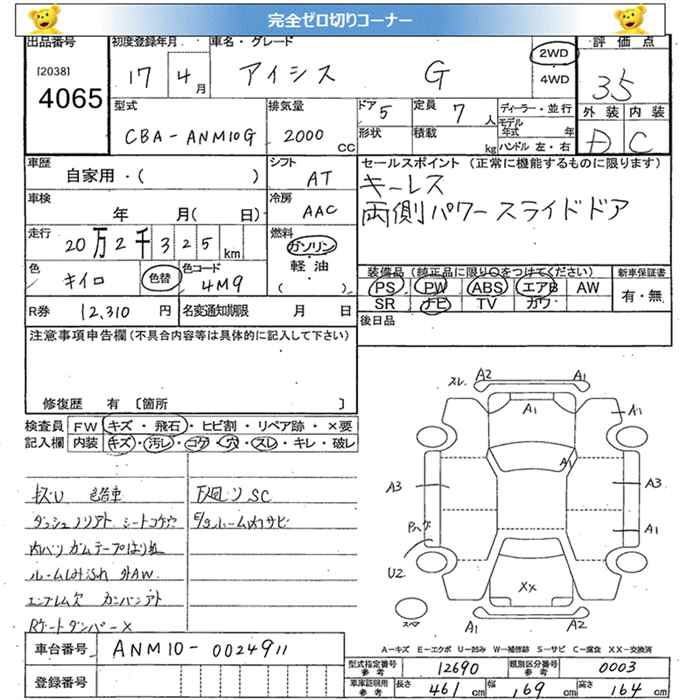 完全ゼロ切りコーナー
出品番号 初度登録年月 車名・グレード 評価点
[2038]
4065
17年 4月 アイシス G 2WD 4WD 3.5
型式 排気量 ドア 5 定員 7人 ディーラー・並行 外装 内装
CBA-ANM10G 2000cc 形状 積載 kg モデル年式 年 ハンドル 左・右 D C
車歴 シフト セールスポイント (正常に機能するものに限ります)
自家用・( ) AT キーレス
車検 冷房 両側パワースライドドア
年 月( 日) AAC
走行 燃料
20万2千325km ガソリン
軽油
( )
色 色替 色コード
キイロ 4M9
装備品(純正品に限り○をつけてください) 新車保証書
PS PW ABS エアB AW 有・無
SR ナビ TV カワ
R券 12,310円 名変通知期限 月 日 後日品
注意事項申告欄(不具合内容等は具体的に記入して下さい)
修復歴 有 [箇所 ]
検査員記入欄 FW キズ・飛石・ヒビ割・リペア跡・×要
内装 キズ・汚レ・コゲ・穴・スレ・キレ・破レ
キズU 色替車 下廻りSC
ダッシュノリアト シートコゲ穴 E/gルーム内サビ
内バリ ガムテープはり粒
ルームしみ汚れ 外AW
エンブレム欠 カンバンアト
Rゲートダンパー×
スレ A2 A1
A1
A1
A1
A3 A3
A1
U2
XX
A2 A1
スペア
A-キズ E-エクボ U-凹み W-補修跡 S-サビ C-腐食 XX-交換済
車台番号 ANM10-0024911
登録番号
型式指定番号 参考 12690 類別区分番号 参考 0003
車庫証明用 参考 長さ 461cm 幅 169cm 高さ 164cm